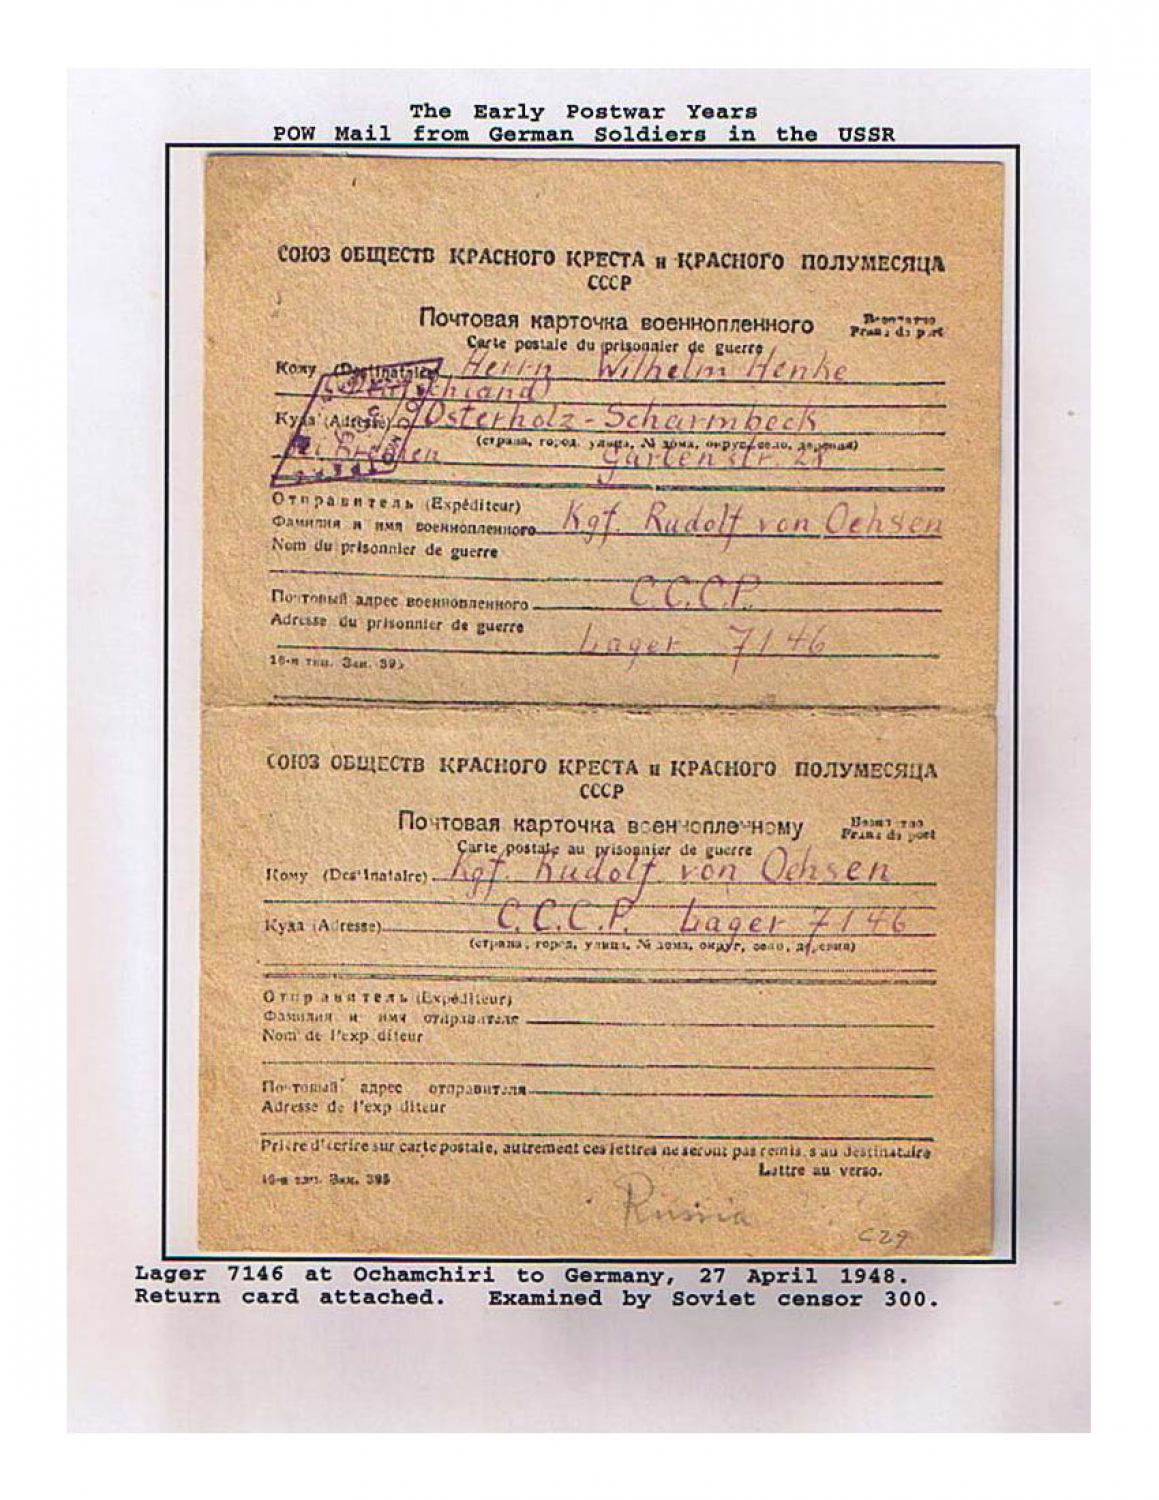 The Early Postwar Years
POW Mail from German Soldiers in the USSR
СОЮЗ ОБЩЕСТВ КРАСНОГО КРЕСТА и КРАСНОГО ПОЛУМЕСЯЦА
СССР
Почтовая карточка военнопленного
Carte postale du prisonnier de guerre
Franc de port
Кому (Destinataire) Herrn Wilhelm Henke
Deutschland
Куда (Adresse) Osterholz-Scharmbeck
(страна, город, улица, № дома, округ, село, деревня)
bei Bremen Gartenstr. 21
Отправитель (Expéditeur)
Фамилия и имя военнопленного Kgf. Rudolf von Oehsen
Nom du prisonnier de guerre
Почтовый адрес военнопленного C.C.C.P.
Adresse du prisonnier de guerre
Lager 7146
16-я тип. Зак. 395
СОЮЗ ОБЩЕСТВ КРАСНОГО КРЕСТА и КРАСНОГО ПОЛУМЕСЯЦА
СССР
Почтовая карточка военнопленному
Carte postale au prisonnier de guerre
Franc de port
Кому (Destinataire) Kgf. Rudolf von Oehsen
Куда (Adresse) C.C.C.P. Lager 7146
(страна, город, улица, № дома, округ, село, деревня)
Отправитель (Expéditeur)
Фамилия и имя отправителя
Nom de l'exp diteur
Почтовый адрес отправителя
Adresse de l'exp diteur
Prière d'écrire sur carte postale, autrement ces lettres ne seront pas remises au destinataire
Lettre au verso.
16-я тип. Зак. 395
Russia
C29
Lager 7146 at Ochamchiri to Germany, 27 April 1948.
Return card attached. Examined by Soviet censor 300.